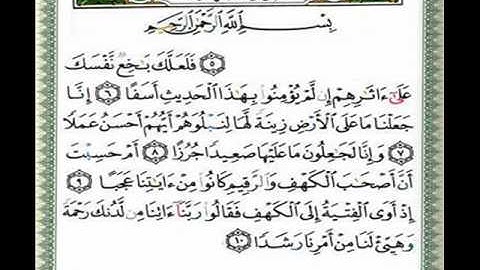 بِسْمِ ٱللَّهِ ٱلرَّحْمَٰنِ ٱلرَّحِيمِ
۝٥ فَلَعَلَّكَ بَٰخِعٌ نَّفْسَكَ
عَلَىٰٓ ءَاثَٰرِهِمْ إِن لَّمْ يُؤْمِنُوا۟ بِهَٰذَا ٱلْحَدِيثِ أَسَفًا ۝٦ إِنَّا
جَعَلْنَا مَا عَلَى ٱلْأَرْضِ زِينَةً لَّهَا لِنَبْلُوَهُمْ أَيُّهُمْ أَحْسَنُ عَمَلًا
۝٧ وَإِنَّا لَجَٰعِلُونَ مَا عَلَيْهَا صَعِيدًا جُرُزًا ۝٨ أَمْ حَسِبْتَ
أَنَّ أَصْحَٰبَ ٱلْكَهْفِ وَٱلرَّقِيمِ كَانُوا۟ مِنْ ءَايَٰتِنَا عَجَبًا ۝٩
إِذْ أَوَى ٱلْفِتْيَةُ إِلَى ٱلْكَهْفِ فَقَالُوا۟ رَبَّنَآ ءَاتِنَا مِن لَّدُنكَ رَحْمَةً
وَهَيِّئْ لَنَا مِنْ أَمْرِنَا رَشَدًا ۝١٠